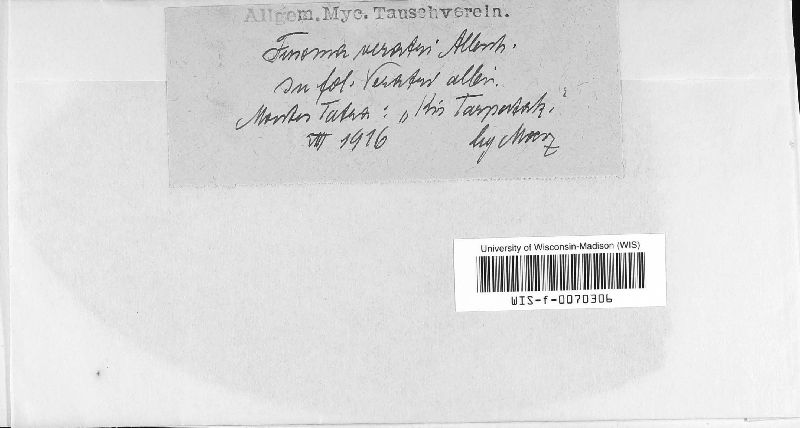 Allgem. Myc. Tauschverein.
Fusoma veratri Allesch.
in fol. Veratri albi.
Montes Tatra: „Kis Tarpatak."
VIII 1916 leg Moesz
University of Wisconsin-Madison (WIS)
WIS-f-0070306